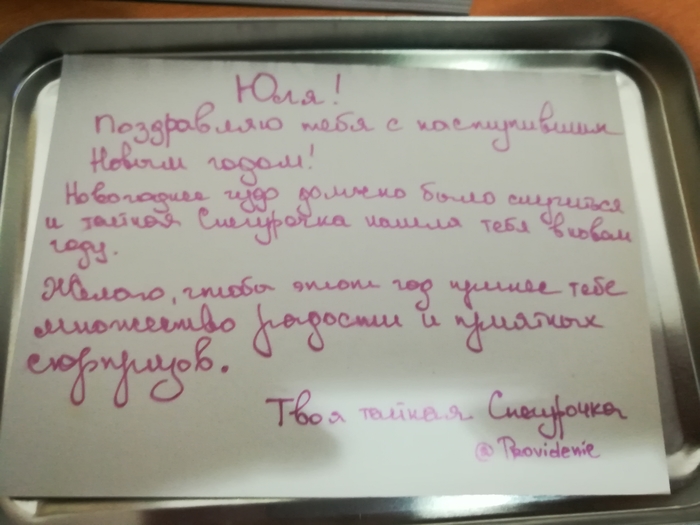 Юля!
Поздравляю тебя с наступившим
Новым годом!
Новогоднее чудо должно было случиться
и тайная Снегурочка нашла тебя в новом
году.
Желаю, чтобы этот год принес тебе
множество радости и приятных
сюрпризов.
Твоя тайная Снегурочка
@Providenie